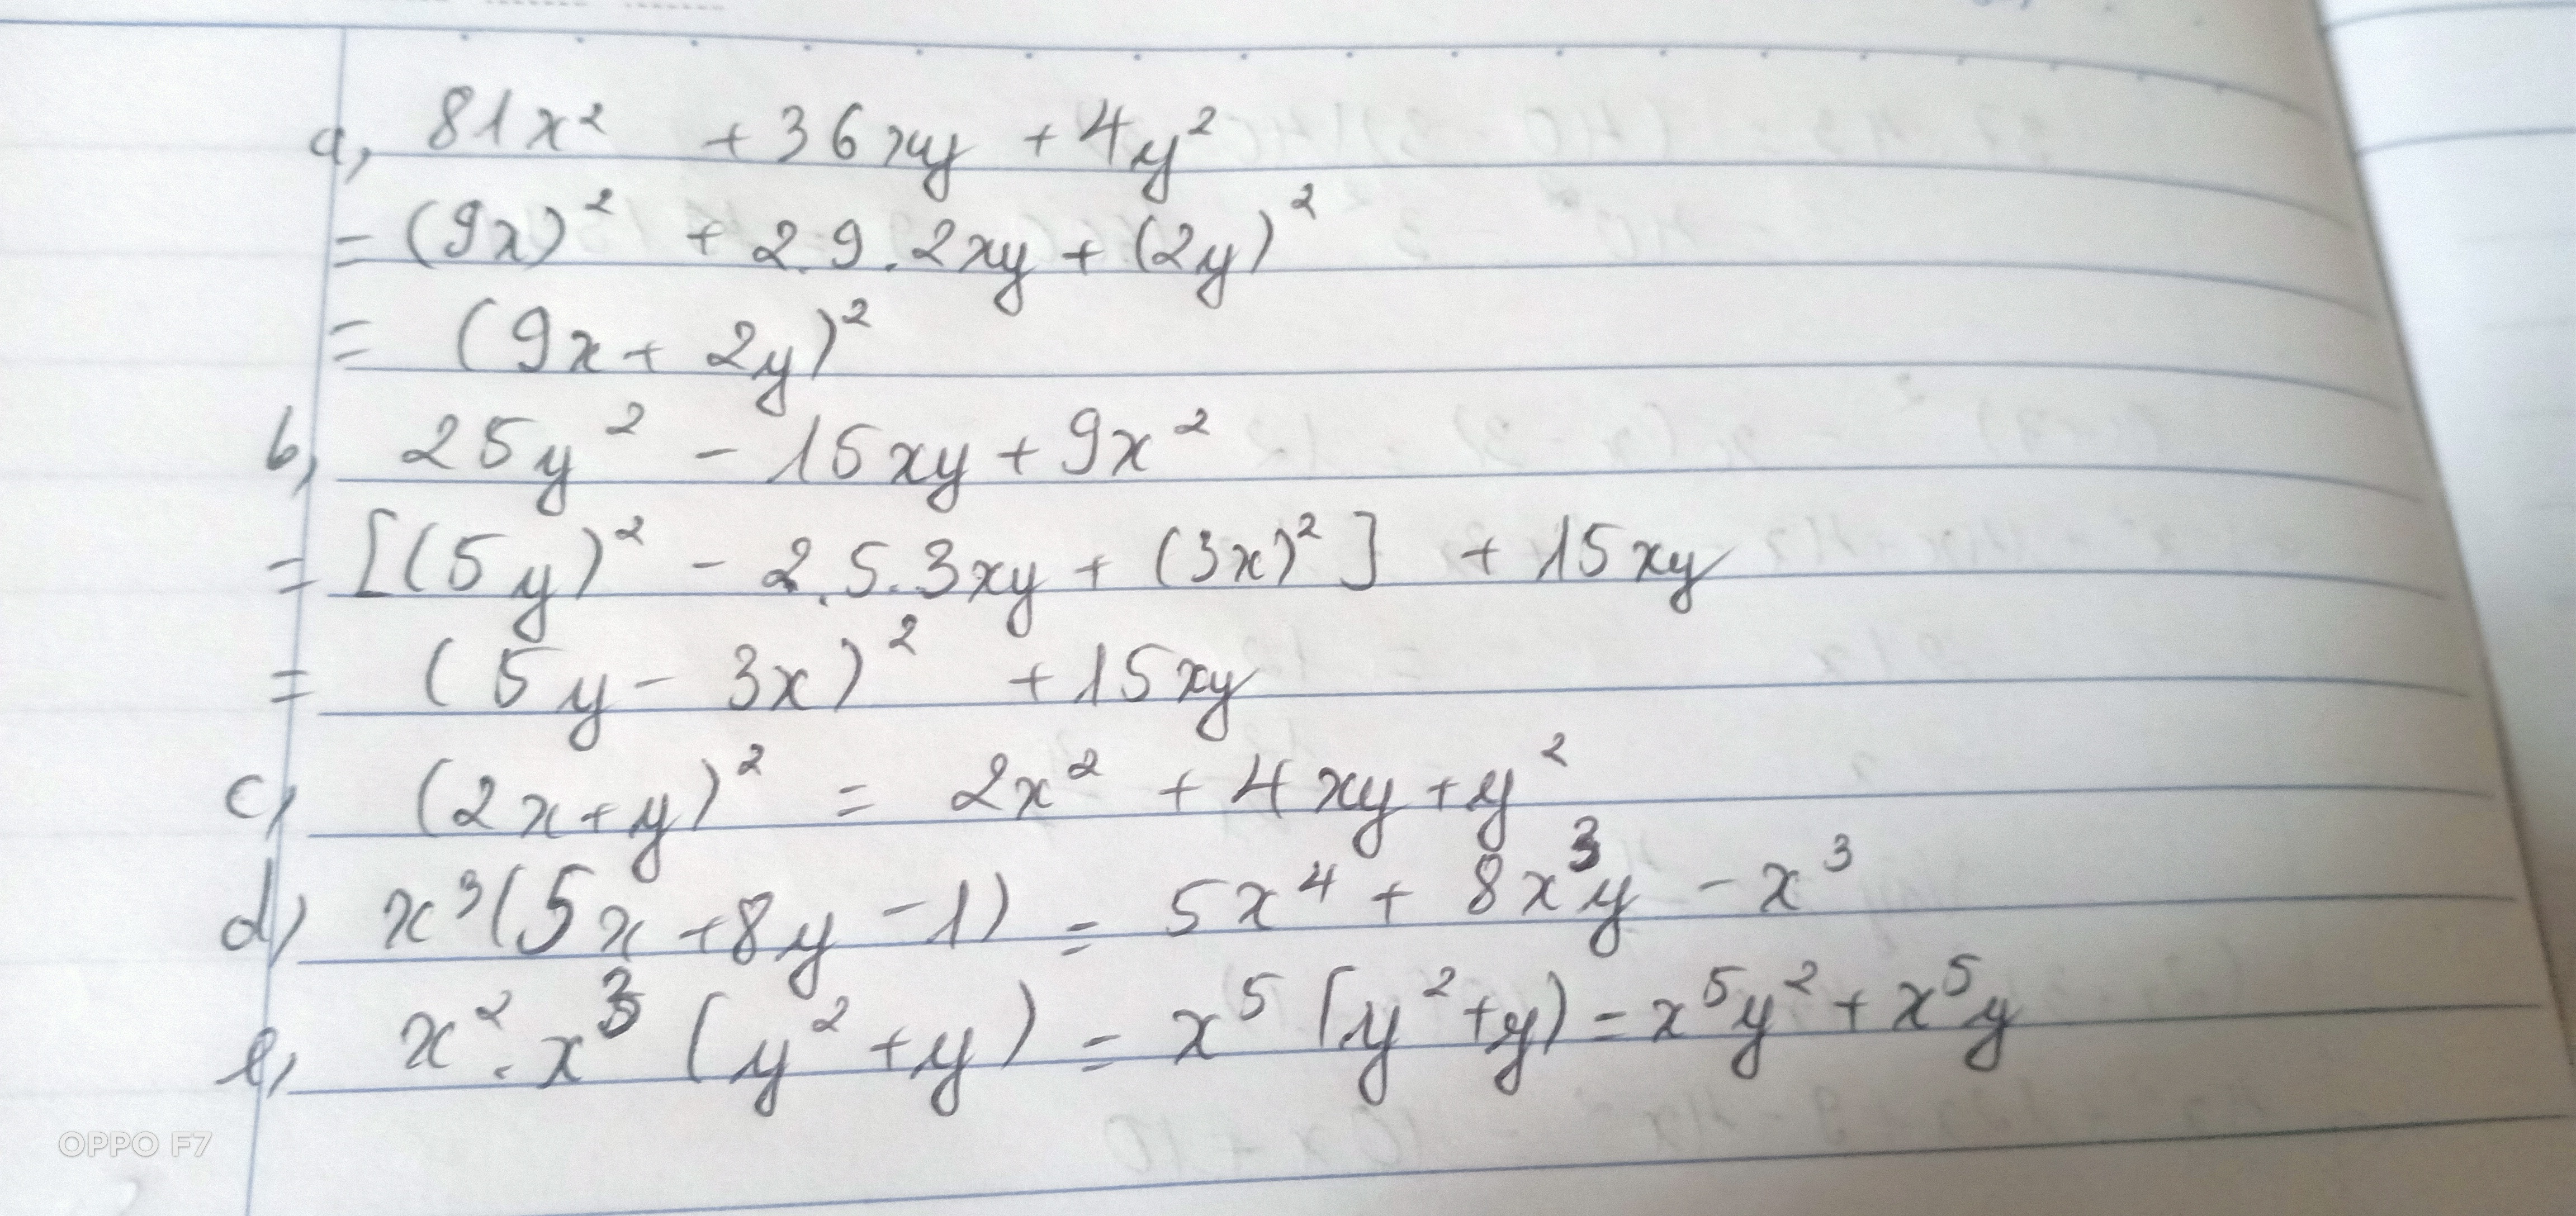 a, 81x² + 36xy + 4y²
= (9x)² + 2.9.2xy + (2y)²
= (9x + 2y)²
b, 25y² - 15xy + 9x²
= [(5y)² - 2.5.3xy + (3x)²] + 15xy
= (5y - 3x)² + 15xy
c, (2x+y)² = 2x² + 4xy + y²
d, x³(5x + 8y - 1) = 5x⁴ + 8x³y - x³
e, x². x³ (y² + y) = x⁵ (y² + y) = x⁵y² + x⁵y
OPPO F7